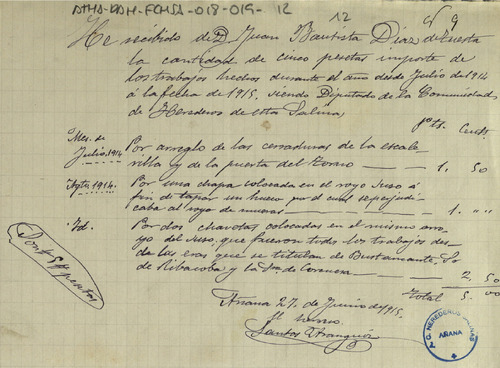 ATHA-DAH-FCMSA-018-019-12
12
9
He recibido de D. Juan Bautista Diaz de Tuesta
la cantidad de cinco pesetas importe de
los trabajos hechos durante el año desde Julio de 1914
á la fecha de 1915, siendo Diputado de la Comunidad
de Herederos de esta Salina
Pts. Cents.
Mes de Julio, 1914
Por arreglo de las cerraduras de la escale-
rilla y de la puerta del Torco 1. 50
Agto. 1914.
Por una chapa colocada en el royo Suso á
fin de tapar un hueco por el cual se perjudi-
caba al royo de mueras 1. " "
Id.
Por dos chavotas colocadas en el mismo arro-
yo del Suso, que fueron todo los trabajos des-
de las eras que se titulan de Bustamante,
de Ribacoba y la de 2, 50
Total 5. 00
Son 5 pesetas
Añana 27, de Junio de 1915.
Santos Arangüiz
C. HEREDEROS SALINAS
AÑANA